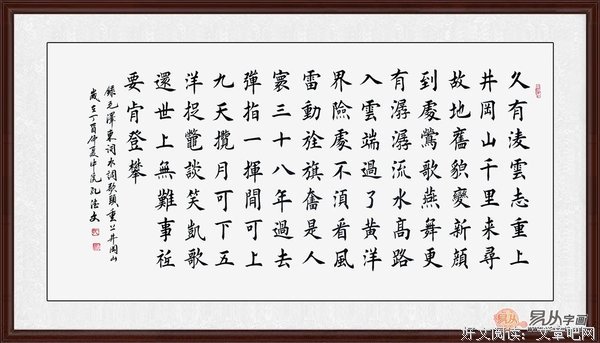 久有凌雲志重上
井岡山千里来尋
故地舊貌變新顔
到處鶯歌燕舞更
有潺潺流水高路
入雲端過了黄洋
界險處不須看風
雷動旌旗奮是人
寰三十八年過去
彈指一揮間可上
九天攬月可下五
洋捉鼈談笑凱歌
還世上無難事祗
要肯登攀
録毛澤東詞水調歌頭重上井岡山
歲在丁酉仲夏中浣孔德
易从字画
好文阅读：文章吧网